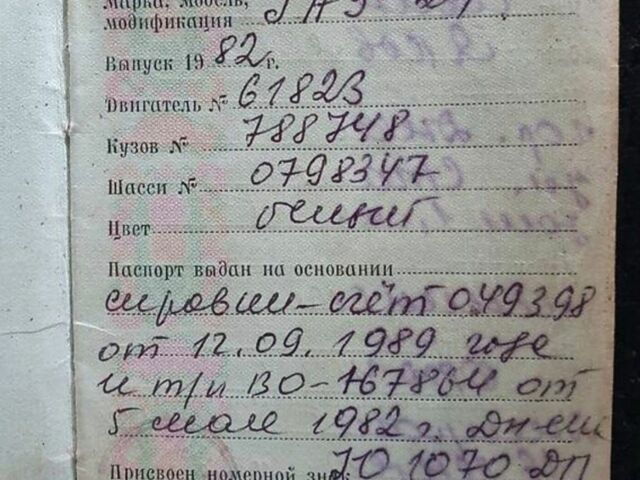 Марка, модель,
модификация ГАЗ 24
Выпуск 19 82 г.
Двигатель № 61823
Кузов № 788748
Шасси № 0798347
Цвет белый
Паспорт выдан на основании
справки-счёт 049398
от 12.09. 1989 года
и т/п ВО-767864 от
5 мая 1982 г.
Присвоен номерной знак 1070 ДП